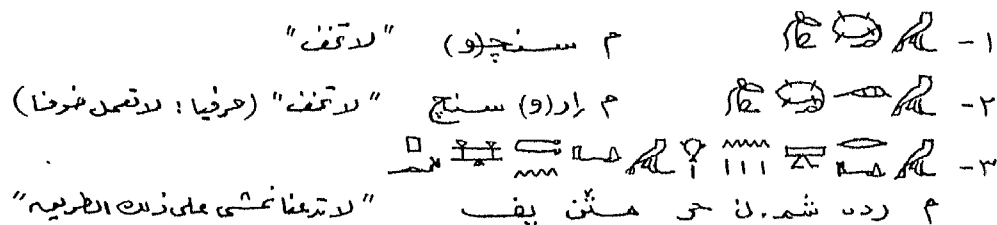 ١- م سنچ(و) "لا تخف"
٢- م إر(و) سنچ "لا تخف" (حرفيا: لا تعمل خوفا)
٣-
م ردت شم.ن حر مثن پف "لا تدعنا نمشى على ذلك الطريق"